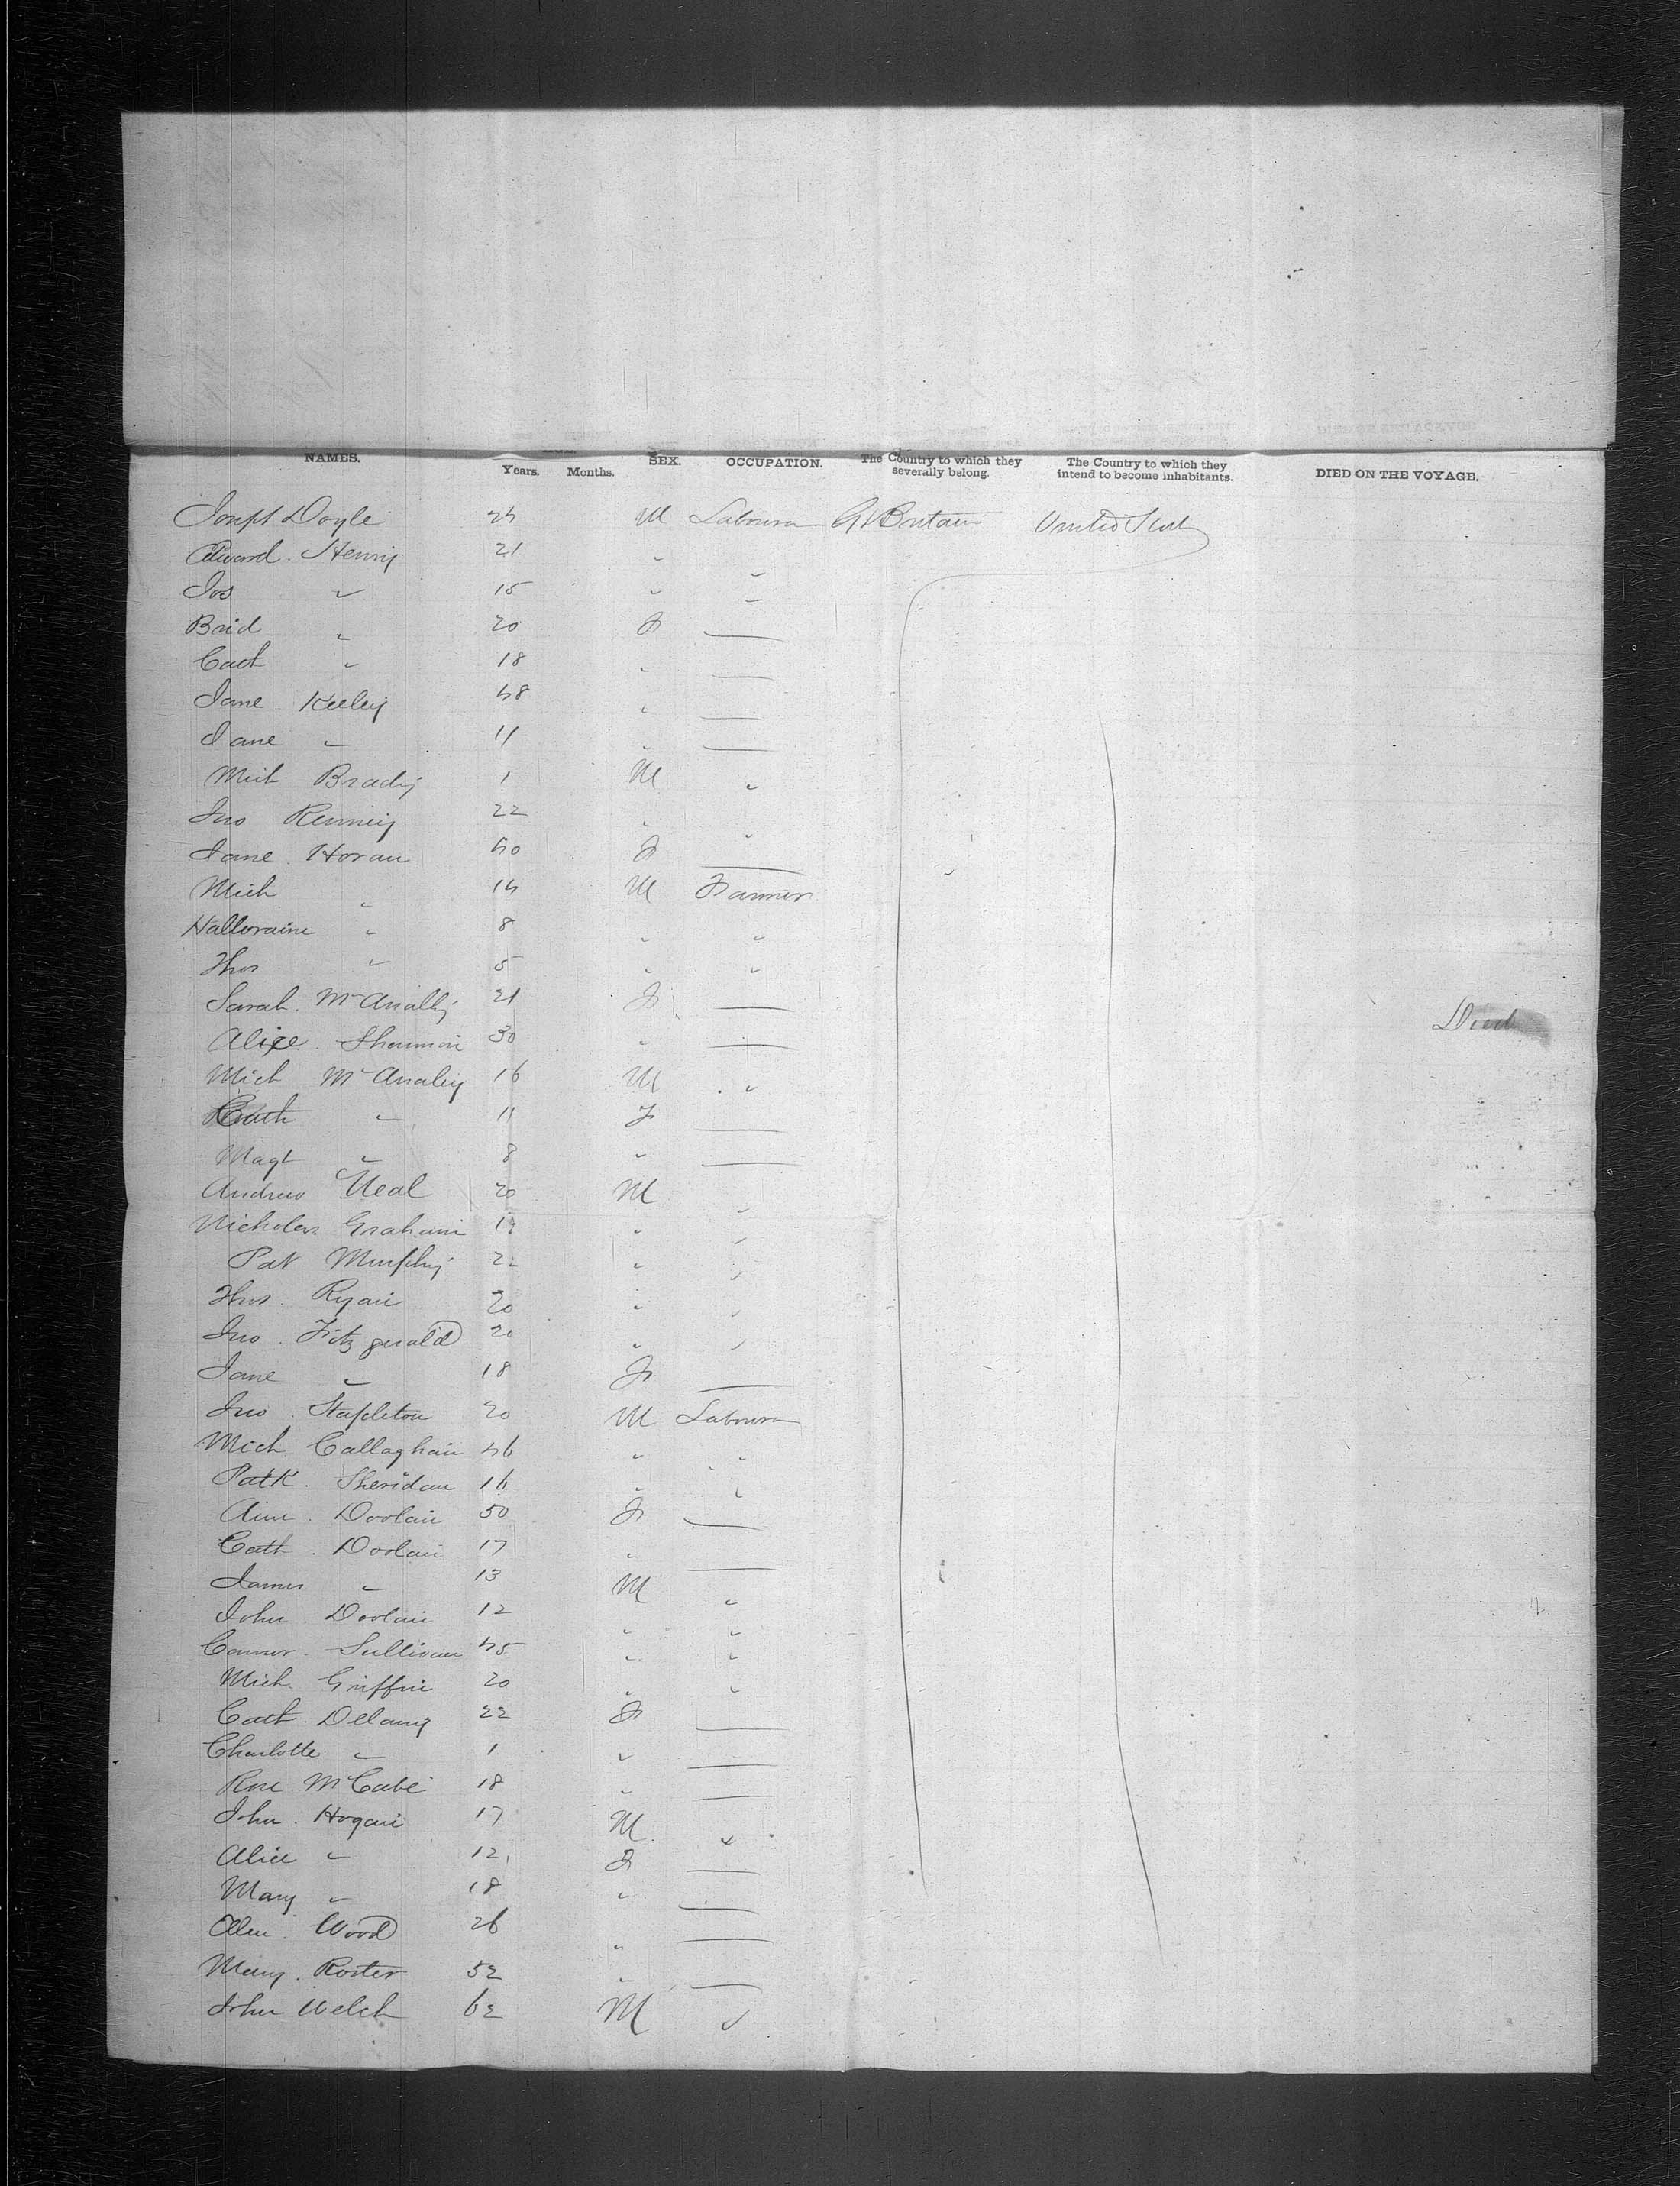 NAMES. Years. Months. SEX. OCCUPATION. The Country to which they severally belong. The Country to which they intend to become inhabitants. DIED ON THE VOYAGE.
Joseph Doyle 24 M Labourer Gt Britain United Stat
Edward Henry 21 "
Jos " 15 " "
Brid " 20 F —
Cath " 18 " —
Jane Keeley 48 " —
Jane " 11 " —
Mich Brady 1 M "
Jno Kenney 22 " "
Jane Horan 40 F —
Mich " 14 M Farmer
Halloraine " 8 " "
Thos " 5 " "
Sarah McAnally 21 F — Died
Alice Shannon 30 " —
Mich McAnaley 16 M "
Cath " 11 F —
Magt " 8 " —
Andrew Neal 20 M "
Nicholas Graham " "
Pat Murphy 22 " "
Thos Ryan 20 " "
Jno Fitzgerald 20 " "
Jane " 18 F —
Jno Stapleton 20 M Labourer
Mich Callaghan 46 " "
Patk Sheridan 16 " "
Ann Doolan 50 F —
Cath Doolan 17 " —
James " 13 M "
John Doolan 12 " "
Connor Sullivan 45 " "
Mich Griffin 20 " "
Cath Delany 22 F —
Charlotte " 1 " —
Rose McCabe 18 " —
John Hogan 17 M "
Alice " 12 F —
Mary " 18 " —
Ellen Wood 26 " —
Mary Roster 52 " —
John Welch 62 M "